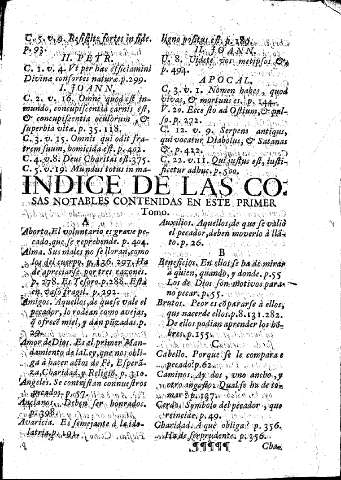 C. 5. v. 9. Resistite fortes in fide.
p. 93.
II. PETR.
C. 1. v. 4. Ut per hæc efficiamini
Divinæ consortes naturæ. p. 299.
I. JOANN.
C. 2. v. 16. Omne quod est in
mundo, concupiscentia carnis est,
& concupiscentia oculorum, &
superbia vitæ. p. 35. 118.
C. 3. v. 15. Omnis qui odit fra-
trem suum, homicida est. p. 402.
C. 4. v. 8. Deus Charitas est. 375.
C. 5. v. 19. Mundus totus in ma-
ligno positus est. p. 189.
II. JOANN.
U. 8. Videte vos metipsos &c.
p. 494.
APOCAL.
C. 3. v. 1. Nomen habes, quod
vivas, & mortuus es. p. 144.
V. 20. Ecce sto ad Ostium, & pul-
so. p. 272.
C. 12. v. 9. Serpens antiquus,
qui vocatur Diabolus, & Satanas
p. 422.
C. 22. v. 11. Qui justus est, justi-
ficetur adhuc. p. 500.
INDICE DE LAS CO-
SAS NOTABLES CONTENIDAS EN ESTE PRIMER
Tomo.
A
Aborto. El voluntario es grave pe-
cado, que se reprehende. p. 404.
Alma. Sus males no se lloran, como
los del cuerpo. p. 136. 297. Ha
de apreciarse por tres razones.
p. 278. Es Tesoro. p. 288. Està
en vaso fragil. p. 292.
Amigos. Aquellos, de que se vale el
pecador, lo rodean como avejas,
que ofrecè miel, y dàn puzadas. p.
Amor de Dios. Es el primer Man-
damiento de la ley, que nos obli-
ga à hacer actos de Fè, Esperã-
za, Charidad, y Religiõ. p. 310.
Angeles. Se contristan con nuestros
pecados. p. 57.
Ancianos. Deben ser honrados.
p. 398.
Avaricia. Es semejante à la ido-
latria. p. 191.
Auxilios. Aquellos, de que se valiò
el pecador, deben moverlo à llã-
to. p. 26.
B
Beneficios. En ellos se ha de mirar
à quien, quando, y donde. p. 55
Los de Dios son motivos para
no pecar. p. 55.
Brutos. Peor es cõpararse à ellos,
que nacerde ellos. p. 8. 131. 282.
De ellos podian aprender los hõ-
bres. p. 155.
C
Cabello. Porque se le compara e
pecado? p. 62.
Caminos. Ay dos, uno ancho, y
otro angosto. Qual se ha de to-
mar? p. 137.
Cerdo. Symbolo del pecador, que
reincide. p. 49.
Charidad. A què obliga? p. 356.
Ha de ser prudente. p. 356.
¶¶¶¶¶
Chae-